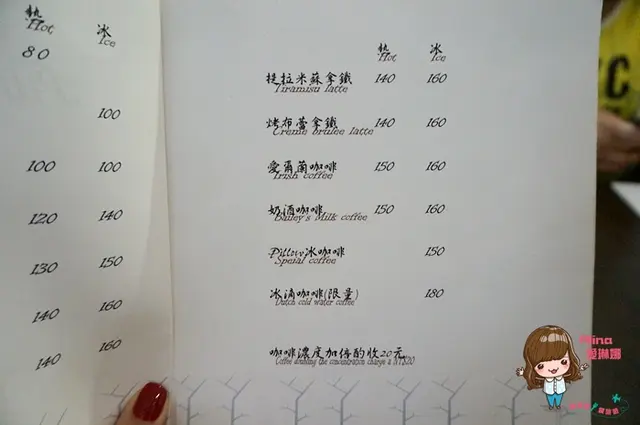 熱 冰
Hot Ice
80
100
100 100
120 140
130 150
140 160
140 160
熱 冰
Hot Ice
提拉米蘇拿鐵 140 160
Tiramisu latte
烤布蕾拿鐵 140 160
Creme brulee latte
愛爾蘭咖啡 150 160
Irish coffee
奶酒咖啡 150 160
Bailey's Milk coffee
Pillow冰咖啡 150
Speial coffee
冰滴咖啡(限量) 180
Dutch cold water coffee
咖啡濃度加倍酌收20元
Coffee doubling the concentration charge a NT$20
愛琳娜